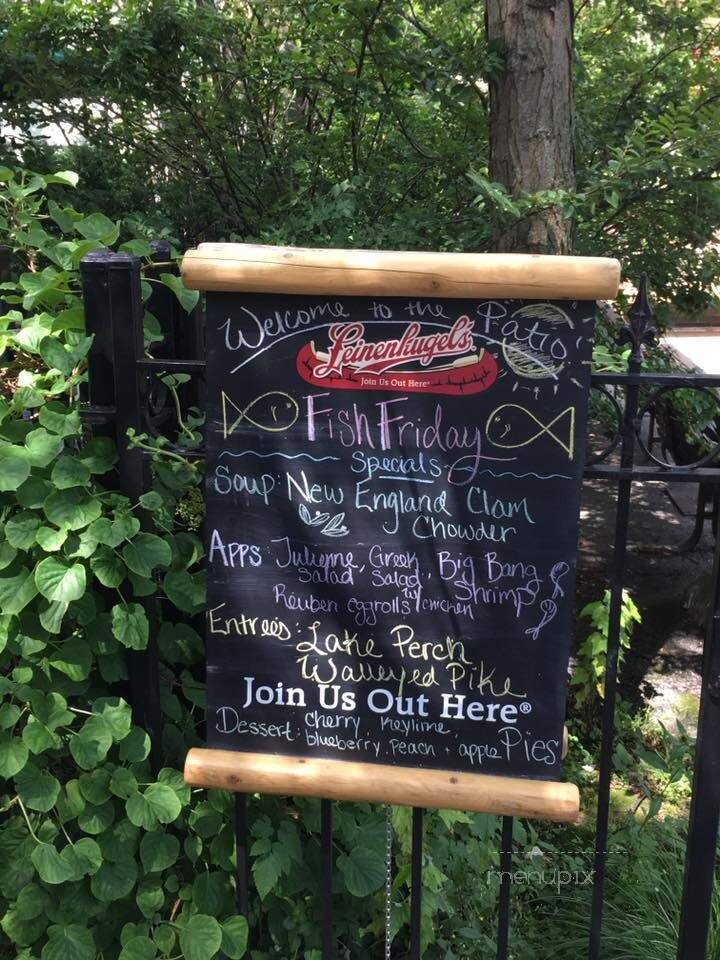 Welcome to the Patio
Leinenkugel's
Join Us Out Here
Fish Friday
Specials
Soup: New England Clam
Chowder
Apps: Julienne Salad, Greek Salad w/ chicken, Big Bang Shrimp
Reuben eggrolls
Entrees: Lake Perch
Walleyed Pike
Join Us Out Here®
Dessert: cherry, keylime,
blueberry, peach + apple Pies
menupix